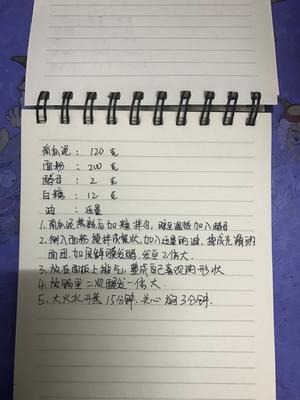 南瓜泥：120克
面粉：200克
酵母：2克
白糖：12克
油：适量
1.南瓜泥蒸熟后加糖拌匀，晾至温热加入酵母
2.倒入面粉搅拌成絮状，加入适量的油，揉成光滑的
面团，如保鲜膜发酵，发至2倍大.
3.放在面板上排气，整成自己喜欢的形状
4.放锅里二次醒发一倍大.
5、大火水开蒸15分钟.关心焖3分钟.